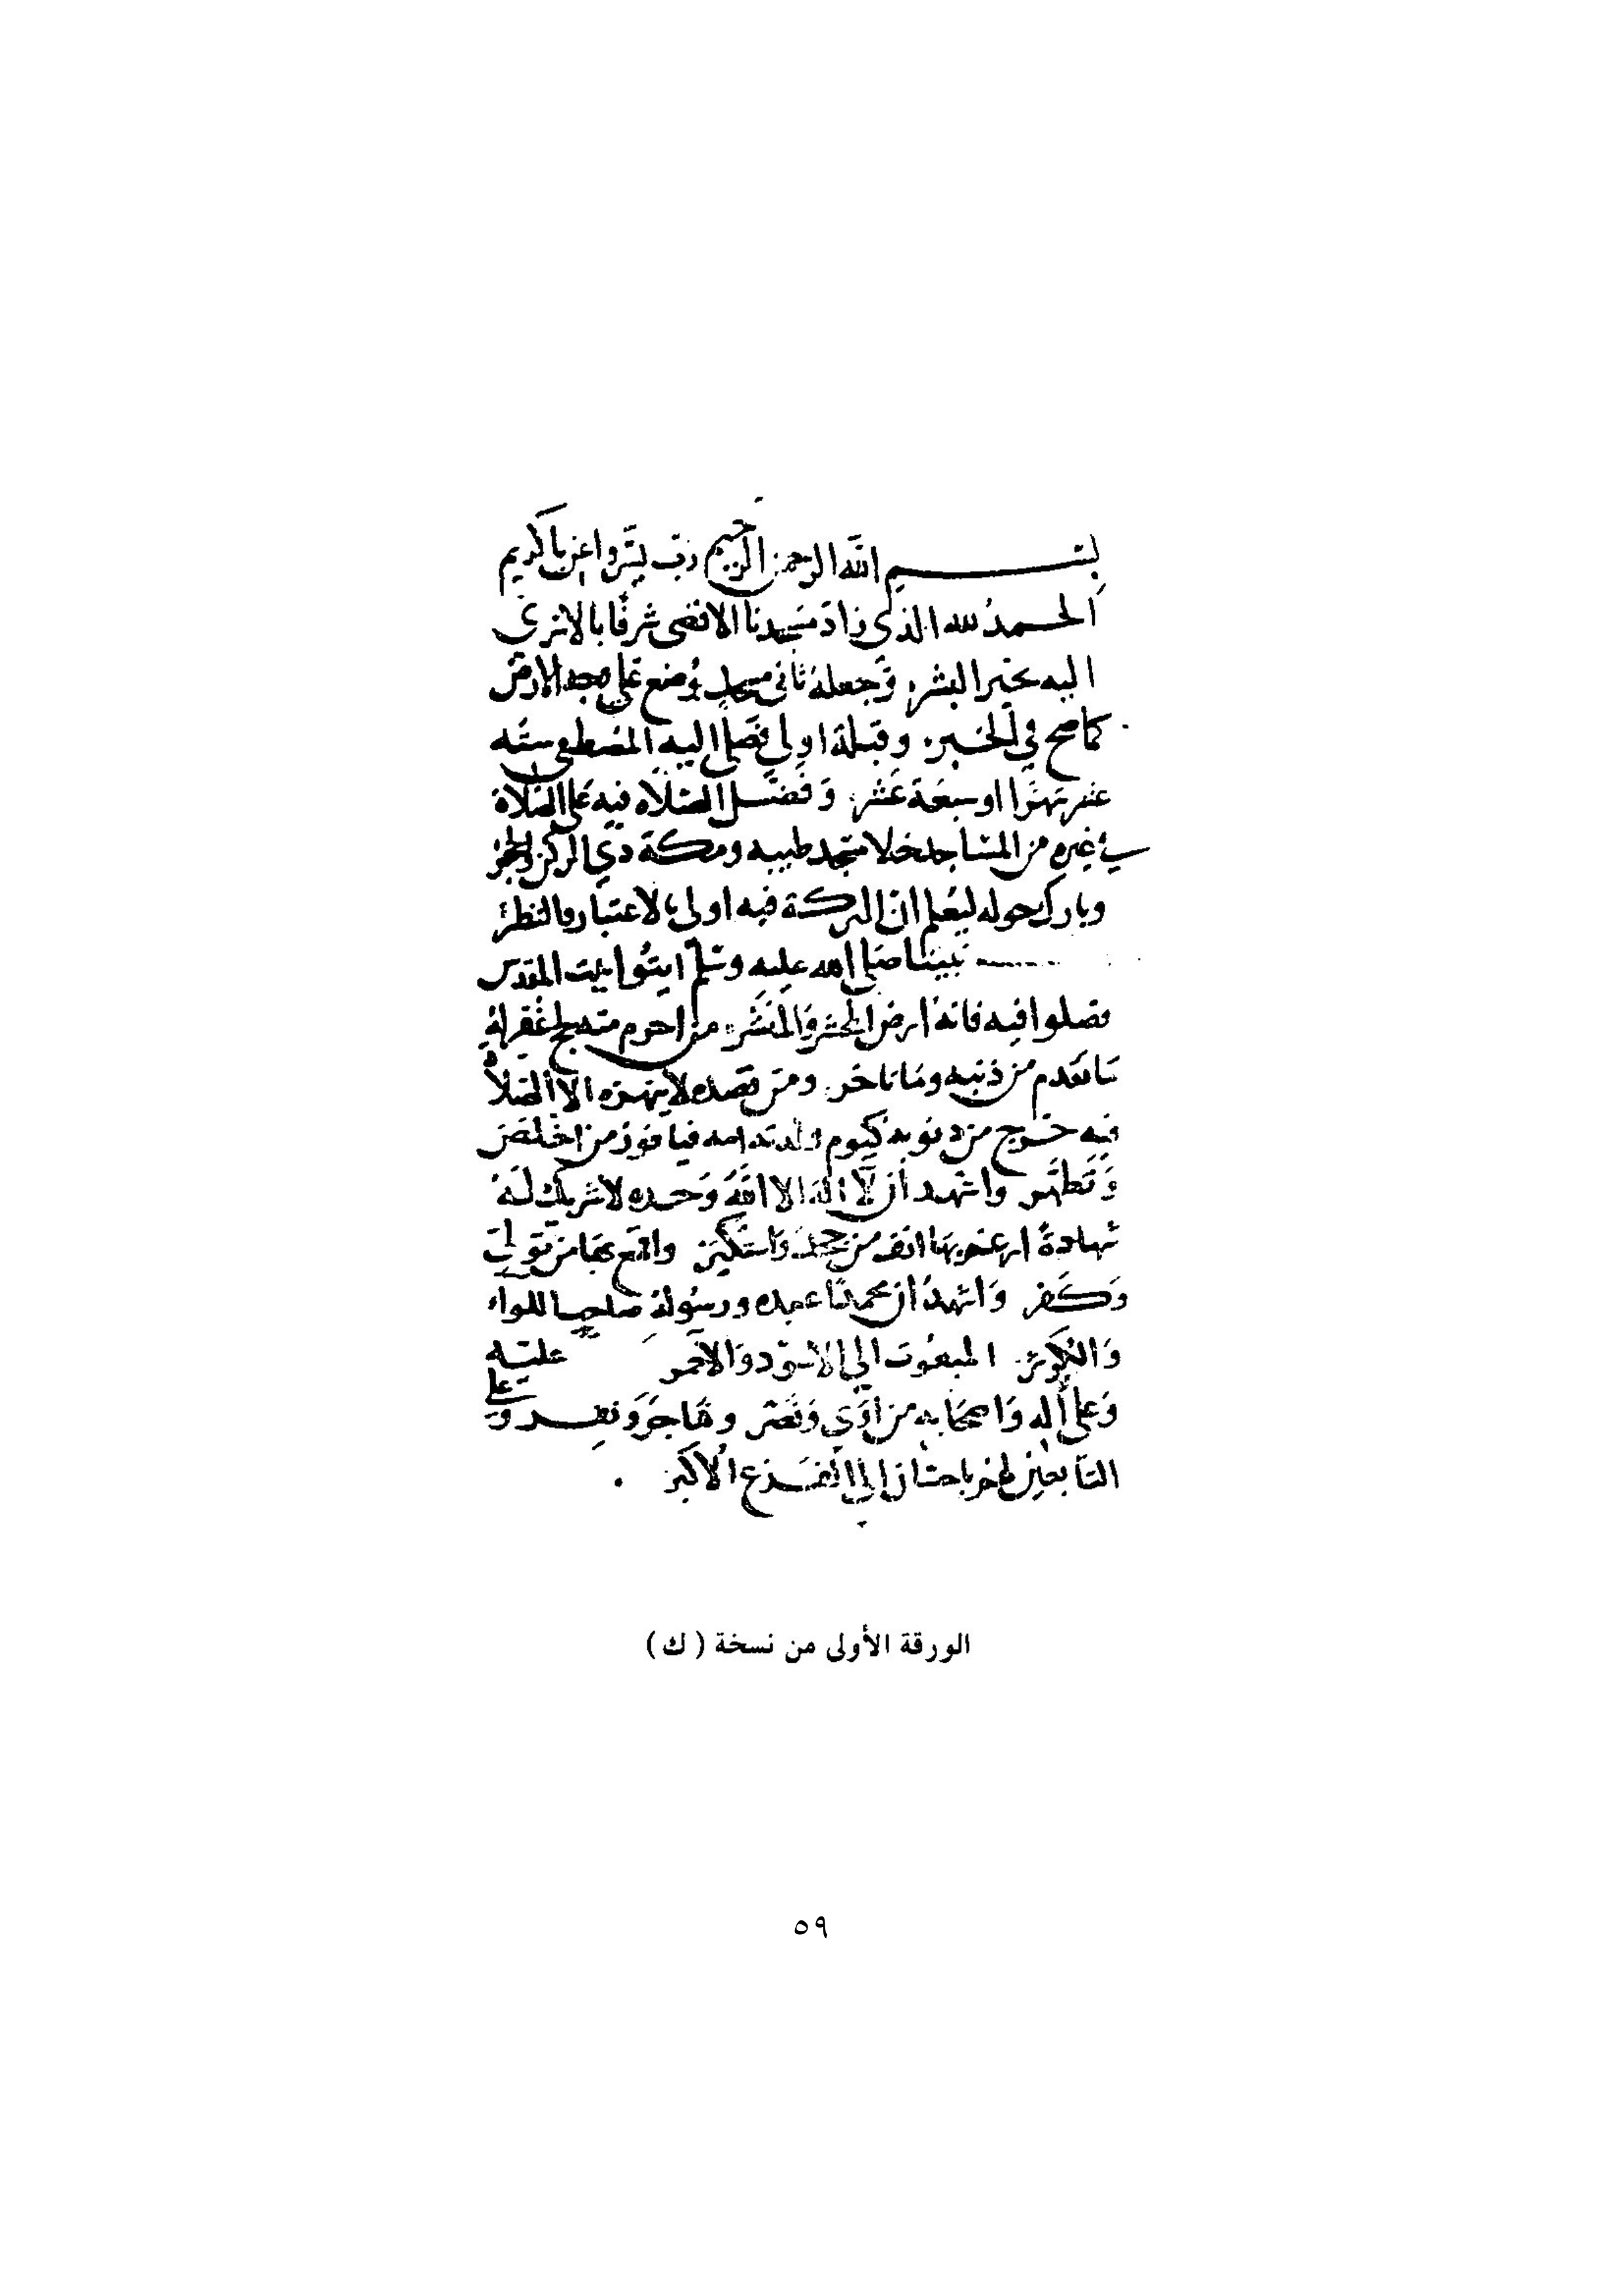 بسم الله الرحمن الرحيم رب يسر واعن يا كريم
الحمد لله الذى زاد مسجدنا الاقصى شرفا بالاسرى
اليه بخير البشر وجعله ثانى مسجد وضع على وجه الارض
كما صح في الخبر وقبلة اولى فصلى اليه المصطفى ستة
عشر شهرا او سبعة عشر وفضل الصلاه فيه على الصلاة
في غيره من المساجد خلا مسجد طيبه ومكة ذي الركن والحجر
وبارك حوله ليعلم ان البركة فيه اولى بالاعتبار والنظر
نبينا صلى الله عليه وسلم ايتوا بيت المقدس
فصلوا فيه فانه ارض المحشر والمنشر من احرم منه بحج غفر له
ما تقدم من ذنبه وما تاخر ومن قصده لا ينهزه الا الصلاة
فيه خرج من ذنوبه كيوم ولدته امه فيا فوز من اخلص
وتطهر واشهد ان لا اله الا الله وحده لا شريك له
شهادة ارغم بها انف من جحد واستكبر واقمع بها من تولى
وكفر واشهد ان محمدا عبده ورسوله صاحب اللواء
والكوثر المبعوث الى الاسود والاحمر عليه
وعلى اله واصحابه من اوى ونصر وهاجر و وعلى
التابعين لهم باحسان الى الفزع الاكبر
الورقة الأولى من نسخة ( ك )
٥٩